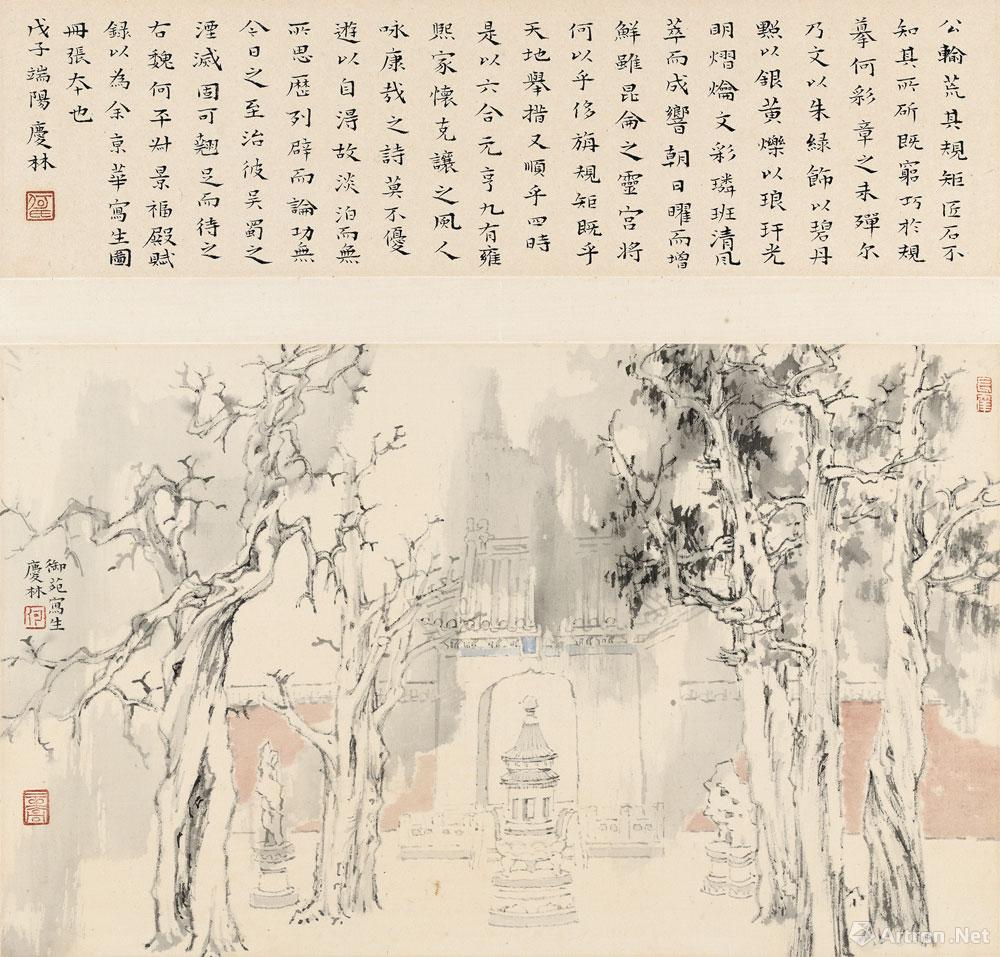 公輸荒其規矩匠石不
知其所斫既窮巧於規
摹何彩章之未殫尔
乃文以朱綠飾以碧丹
點以銀黃爍以琅玕光
明熠爚文彩璘班清風
萃而成響朝日曜而增
鮮雖昆侖之靈宮將
何以乎侈旃規矩既乎
天地舉措又順乎四時
是以六合元亨九有雍
熙家懷克讓之風人
咏康哉之詩莫不優
遊以自淂故淡泊而無
所思歷列辟而論功無
今日之至治彼吳蜀之
湮滅固可翹足而待之
右魏何平叔景福殿賦
錄以為余京華寫生圖
冊張本也
戊子端陽慶林
御苑寫生
慶林
Artron.Net